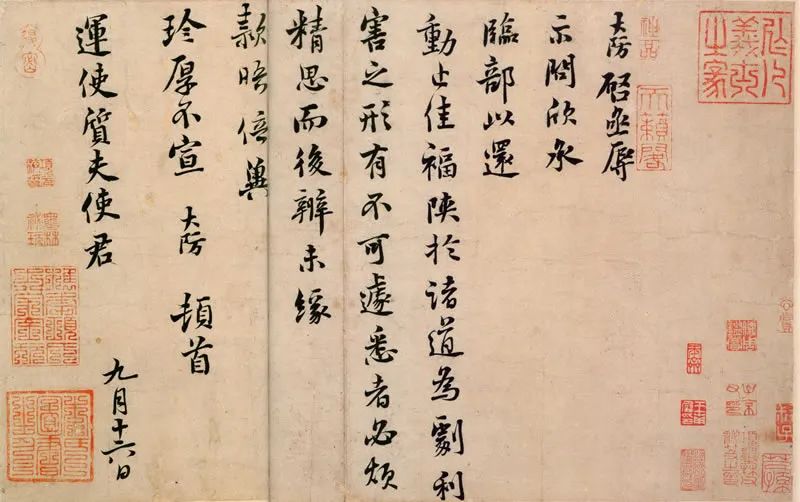 神品
天籟閣
大防啓亟辱
示問欣承
臨部以還
動止佳福陝於諸道為劇利
害之形有不可遽悉者必煩
精思而後辨未緣
款晤倍冀
珍厚不宣 大防 頓首
九月十六日
運使質夫使君